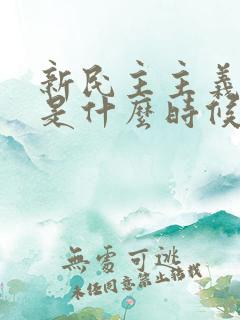 新民主主義
是什麼時候
無處可逃
未经同意禁止转载